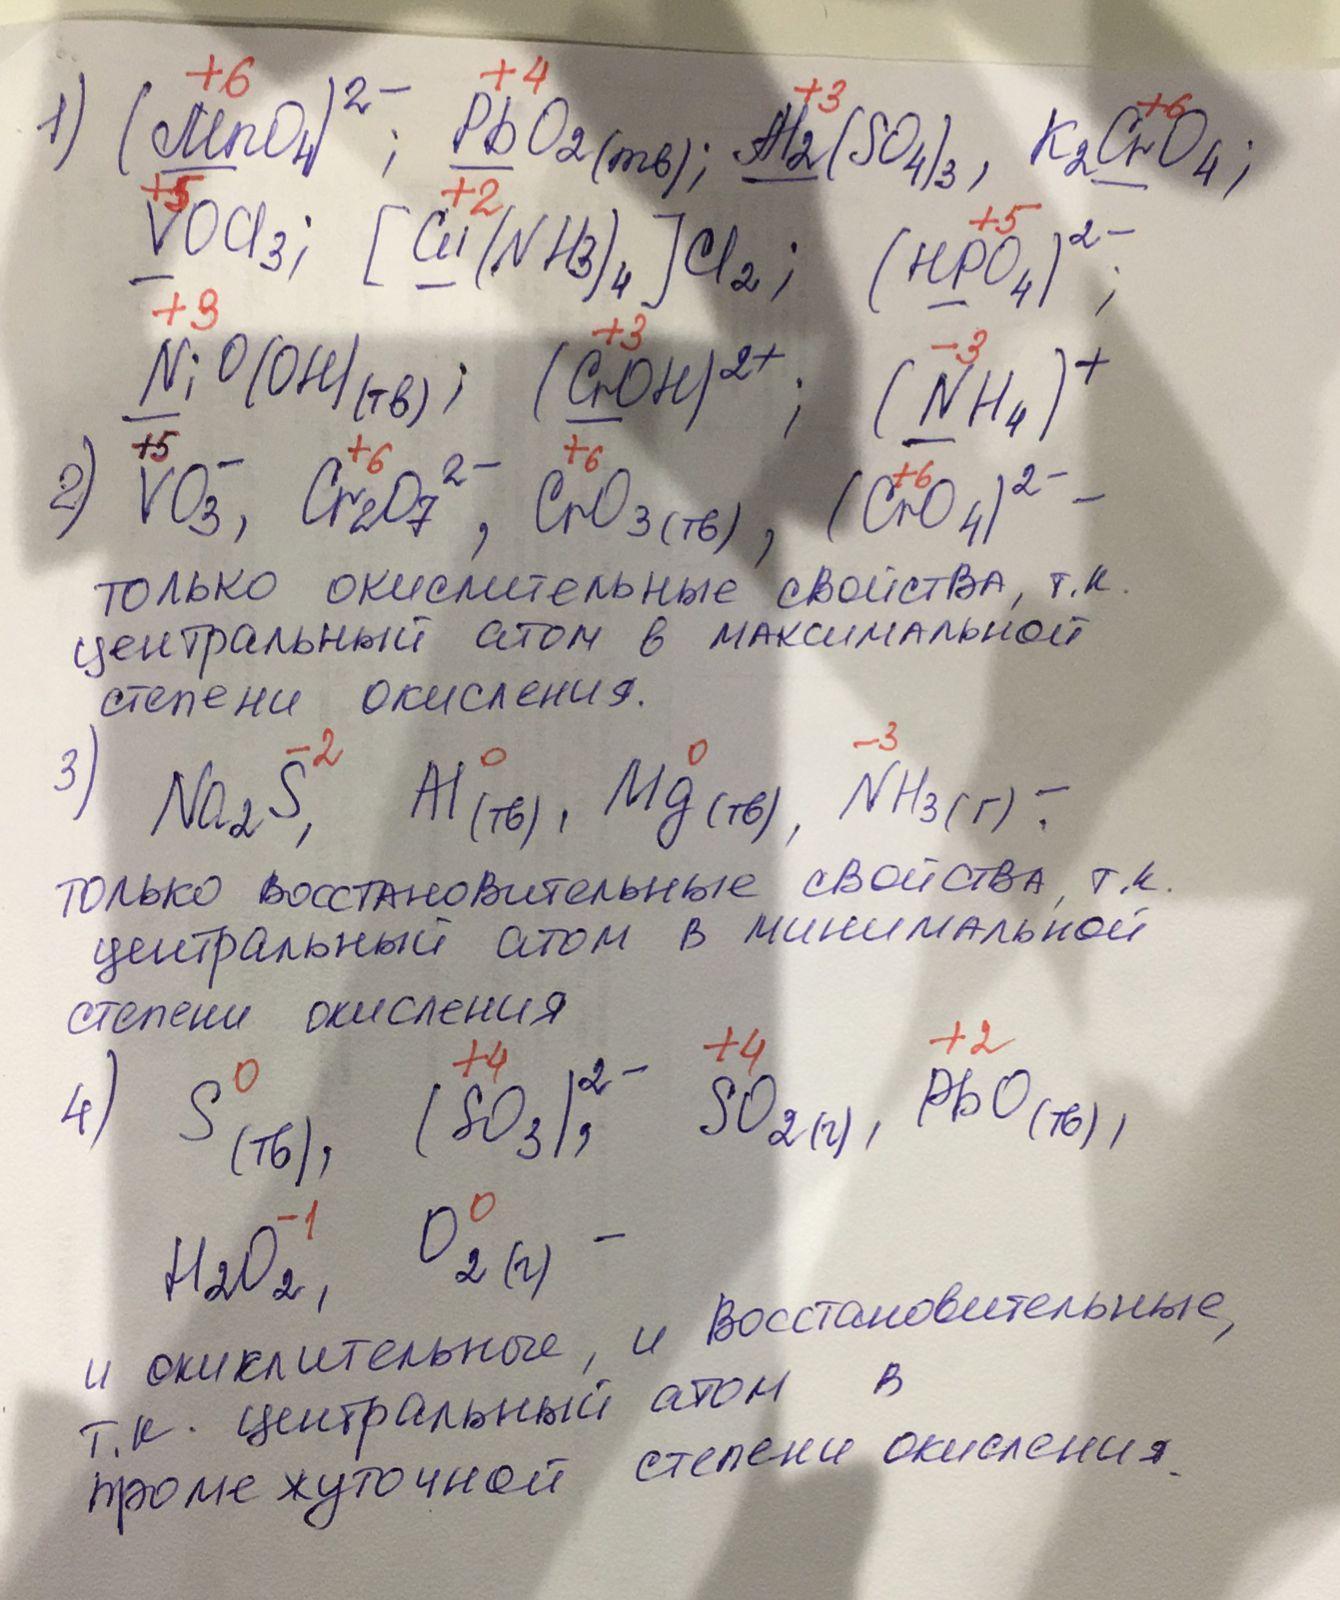 +6 +4 +3 +6
1) (MnO4)2-; PbO2(тв); Al2(SO4)3, K2CrO4;
+5 +2 +5
VOCl3; [Cu(NH3)4]Cl2; (HPO4)2-;
+3 +3 -3
NiO(OH)(тв); (CrOH)2+; (NH4)+
+5 +6 +6 +6
2) VO3-, Cr2O7 2-, CrO3(тв), (CrO4)2- -
только окислительные свойства, т.к.
центральный атом в максимальной
степени окисления.
-2 0 0 -3
3) Na2S, Al(тв), Mg(тв), NH3(г) -
только восстановительные свойства, т.к.
центральный атом в минимальной
степени окисления
0 +4 +4 +2
4) S(тв), (SO3)2-, SO2(г), PbO(тв),
-1 0
H2O2, O2(г) -
и окиклительные, и восстановительные,
т.к. центральный атом в
промежуточной степени окисления.